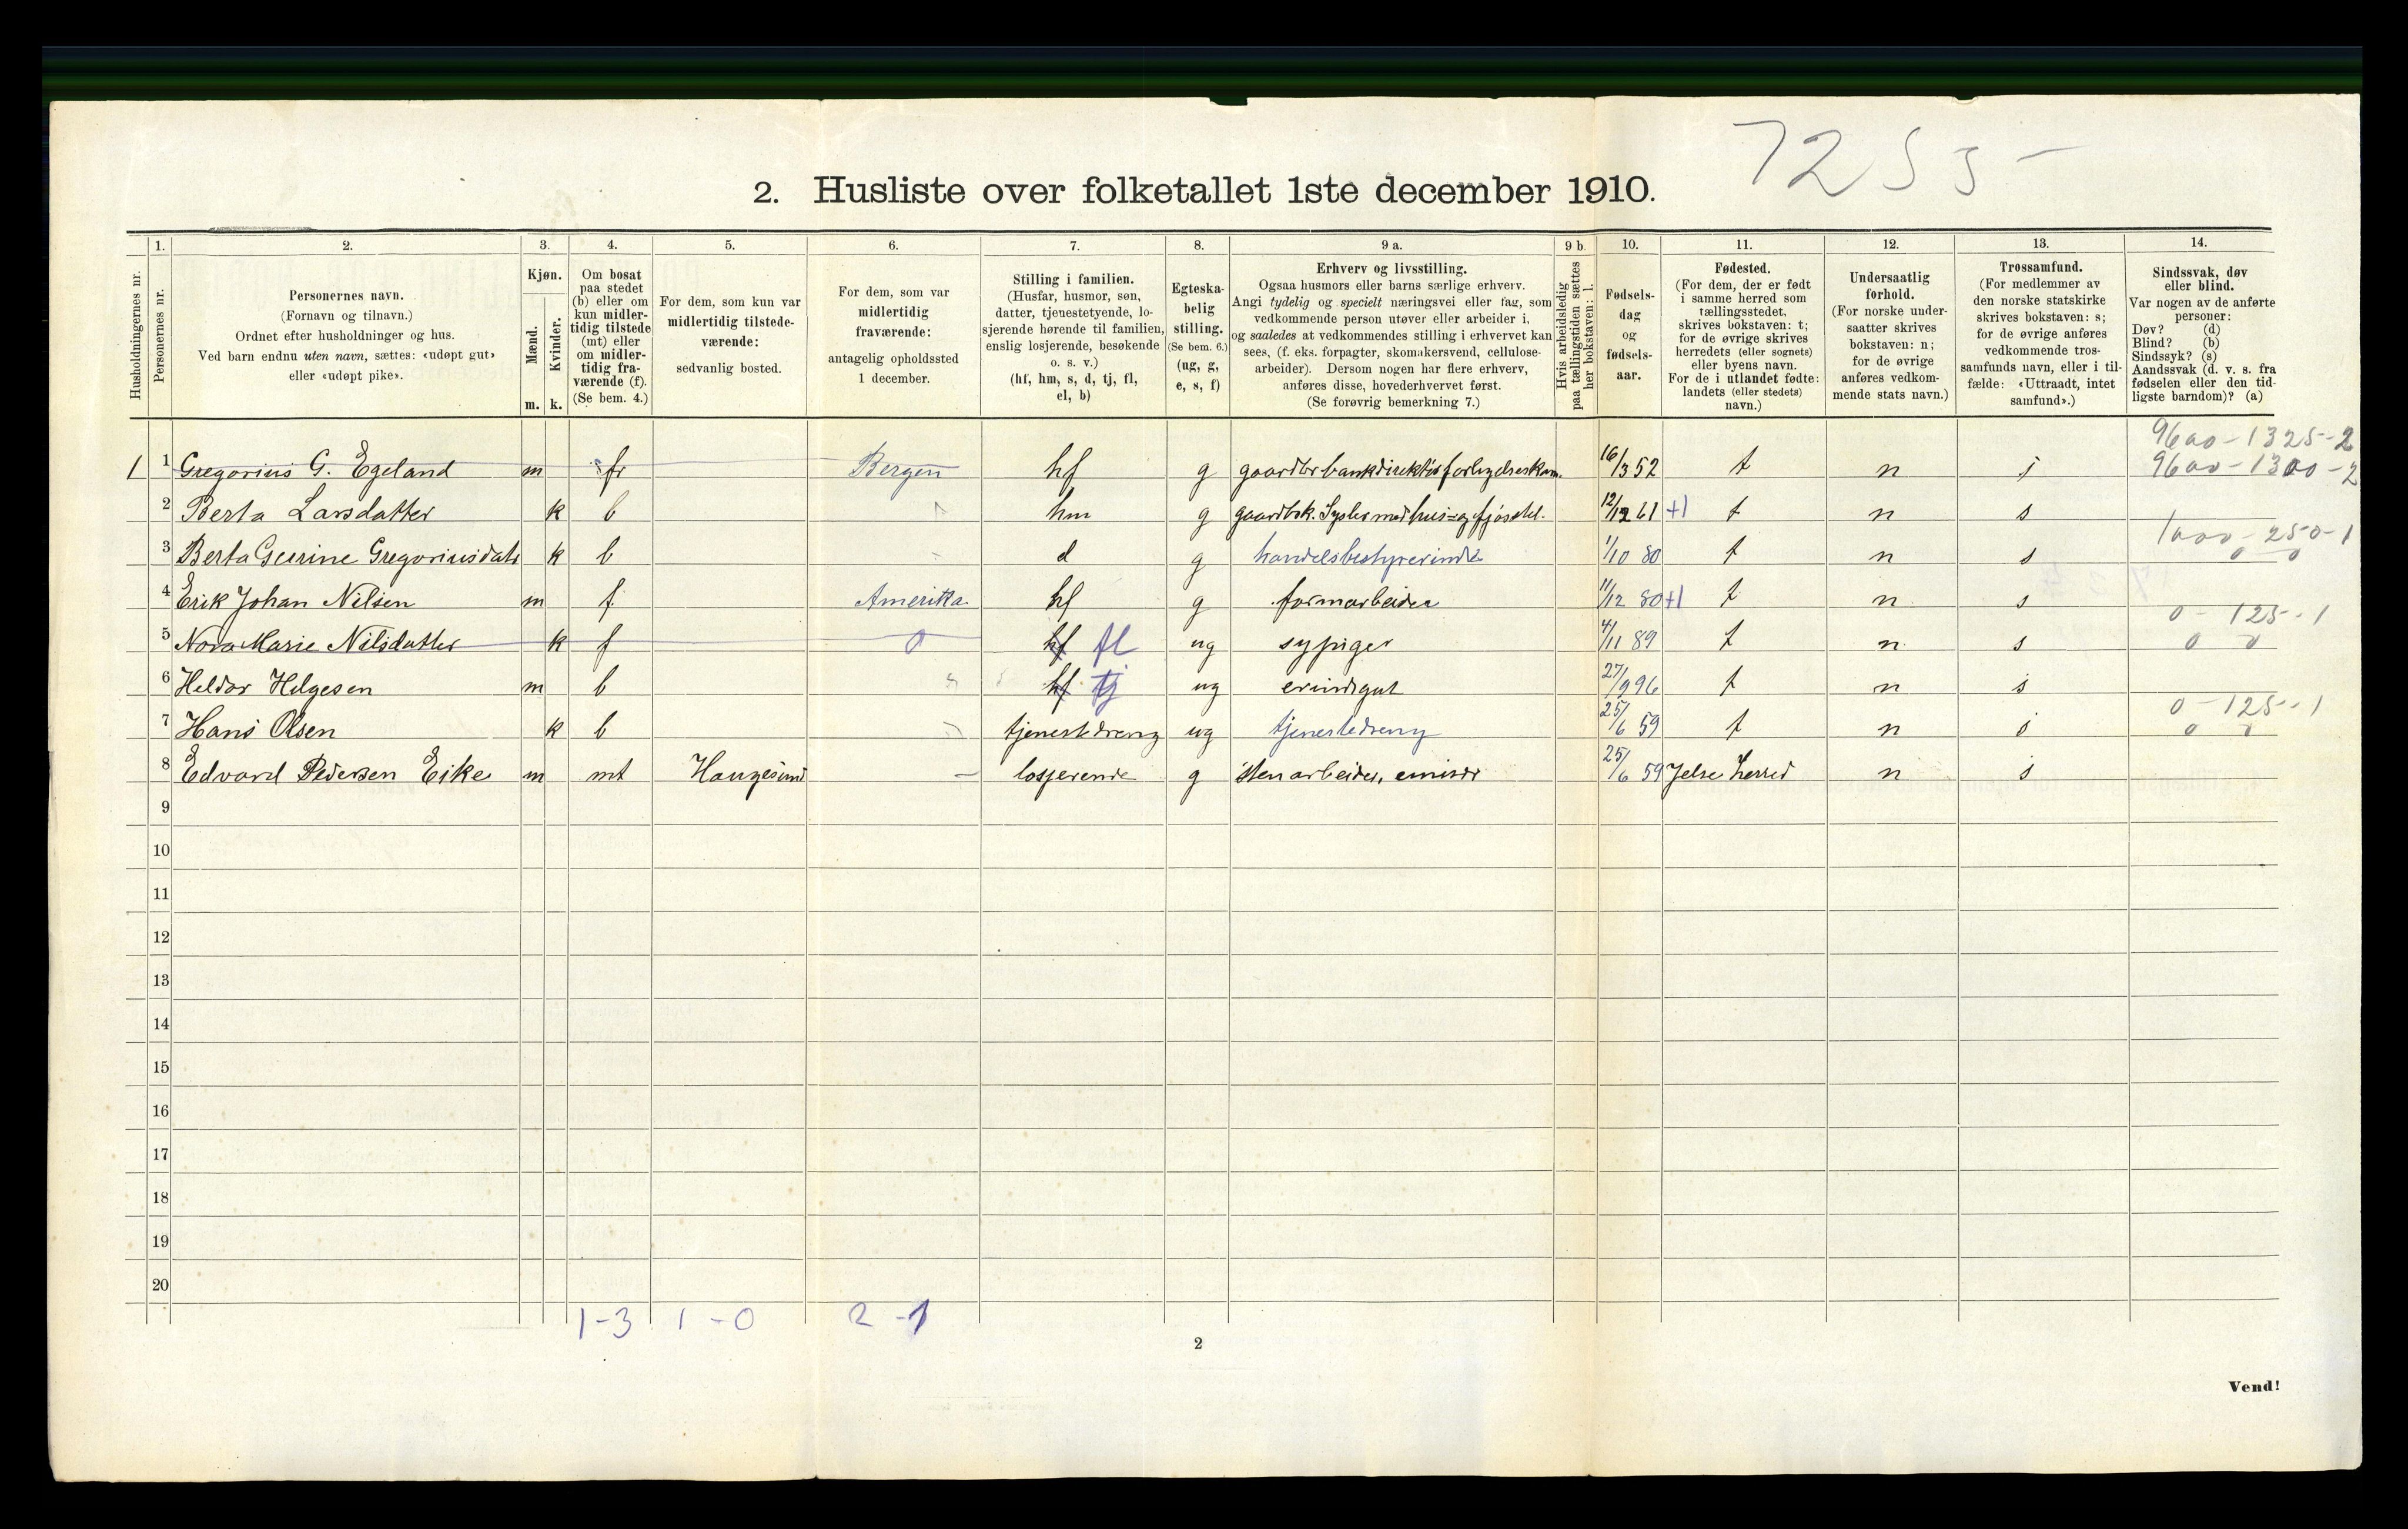 7255-
2. Husliste over folketallet 1ste december 1910.
Husholdningernes nr.
1.
Personernes nr.
2.
Personernes navn.
(Fornavn og tilnavn.)
Ordnet efter husholdninger og hus.
Ved barn endnu uten navn, sættes: «udøpt gut»
eller «udøpt pike».
3.
Kjøn.
Mænd.
Kvinder.
m. k.
4.
Om bosat
paa stedet
(b) eller om
kun midler-
tidig tilstede
(mt) eller
om midler-
tidig fra-
værende (f).
(Se bem. 4.)
5.
For dem, som kun var
midlertidig tilstede-
værende:
sedvanlig bosted.
6.
For dem, som var
midlertidig
fraværende:
antagelig opholdssted
1 december.
7.
Stilling i familien.
(Husfar, husmor, søn,
datter, tjenestetyende, lo-
sjerende hørende til familien,
enslig losjerende, besøkende
o. s. v.)
(hf, hm, s, d, tj, fl,
el, b)
8.
Egteska-
belig
stilling.
(Se bem. 6.)
(ug, g,
e, s, f)
9 a.
Erhverv og livsstilling.
Ogsaa husmors eller barns særlige erhverv.
Angi tydelig og specielt næringsvei eller fag, som
vedkommende person utøver eller arbeider i,
og saaledes at vedkommendes stilling i erhvervet kan
sees, (f. eks. forpagter, skomakersvend, cellulose-
arbeider). Dersom nogen har flere erhverv,
anføres disse, hovederhvervet først.
(Se forøvrig bemerkning 7.)
9 b.
Hvis arbeidsledig
paa tællingstiden sættes
her bokstaven: l.
10.
Fødsels-
dag
og
fødsels-
aar.
11.
Fødested.
(For dem, der er født
i samme herred som
tællingsstedet,
skrives bokstaven: t;
for de øvrige skrives
herredets (eller sognets)
eller byens navn.
For de i utlandet fødte:
landets (eller stedets)
navn.)
12.
Undersaatlig
forhold.
(For norske under-
saatter skrives
bokstaven: n;
for de øvrige
anføres vedkom-
mende stats navn.)
13.
Trossamfund.
(For medlemmer av
den norske statskirke
skrives bokstaven: s;
for de øvrige anføres
vedkommende tros-
samfunds navn, eller i til-
fælde: «Uttraadt, intet
samfund».)
14.
Sindssvak, døv
eller blind.
Var nogen av de anførte
personer:
Døv? (d)
Blind? (b)
Sindssyk? (s)
Aandssvak (d. v. s. fra
fødselen eller den tid-
ligste barndom)? (a)
9600-1325-2
1 1 Gregorius G. Egeland m fr Bergen hf g 16/3 52 t n s 9600-1300-2
2 Berta Larsdatter k b hm g gaardbrk. Sysler med hus= og fjøsstel. 12/12 61 +1 t n s
1000-250-1
3 Berta Geurine Gregoriusdatr k b d g handelsbestyrerinde 1/10 80 t n s 0 0
4 Erik Johan Nilsen m f Amerika hf g farmarbeider 11/12 80 +1 t n s
0-125-1
5 Nora Marie Nilsdatter k f 0 hf fl ug sypiger 4/11 89 t n s 0 0
6 Heldor Helgesen m b hf tj ug erindsgut 27/9 96 t n s
0-125-1
7 Hans Olsen k b tjenestedreng ug tjenestedreng 25/6 59 t n s 0 0
8 Edvard Pedersen Eike m mt Haugesund - losjerende g stenarbeider, emisær 25/6 59 Jelse herred n s
9
10
11
12
13
14
15
16
17
18
19
20
1-3 1-0 2-1
2
Vend!